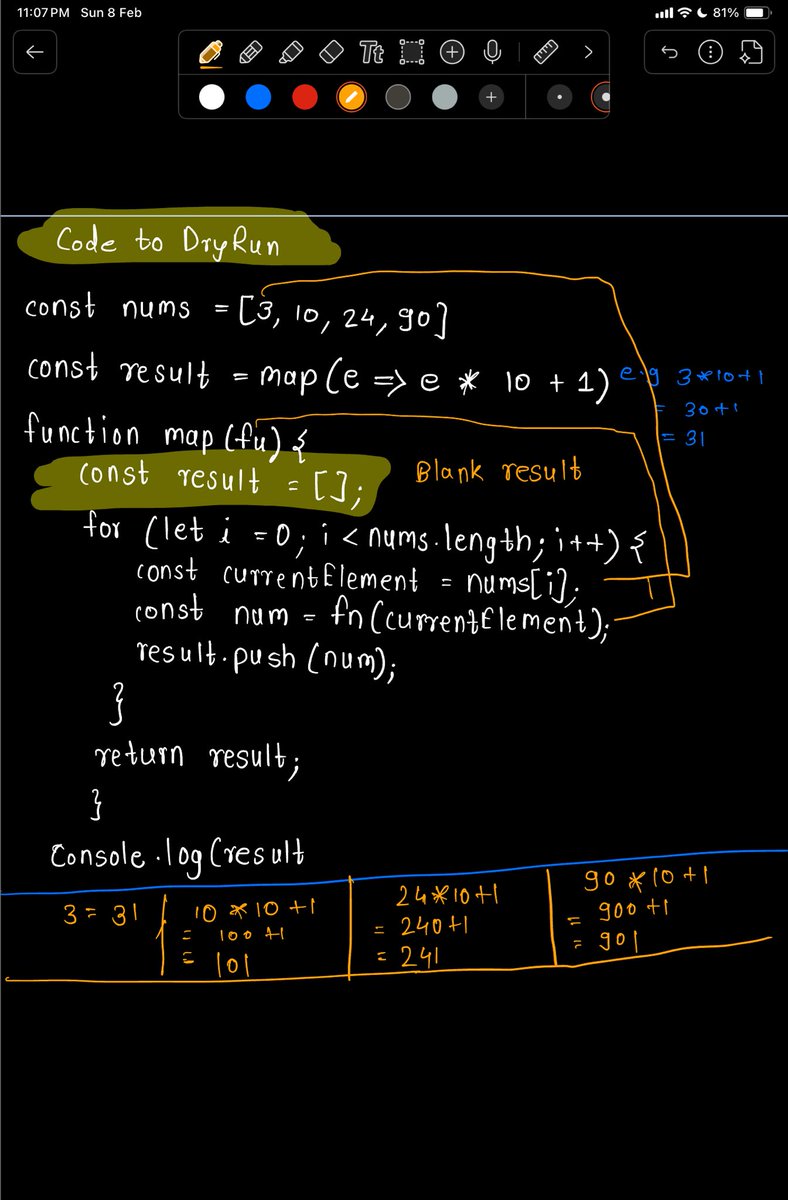 11:07 PM Sun 8 Feb 81%
Tt
Code to DryRun
const nums = [3, 10, 24, 90]
const result = map(e => e * 10 + 1)
e.g 3*10+1
= 30+1
= 31
function map(fu) {
const result = [];
Blank result
for (let i = 0; i < nums.length; i++) {
const currentElement = nums[i];
const num = fn(currentElement);
result.push(num);
}
return result;
}
Console.log(result
3 = 31
10 * 10 +1
= 100 +1
= 101
24*10+1
= 240+1
= 241
90 *10+1
= 900 +1
= 901